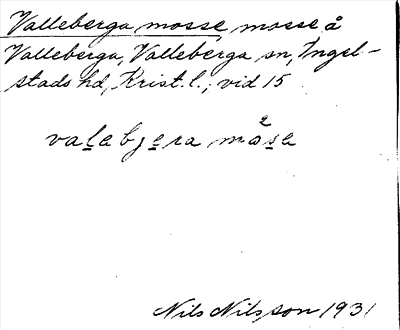 Valleberga mosse, mosse å
Valleberga, Valleberga sn, Ingel-
stads hd, Krist. l.; vid 15
valabjera måsa
Nils Nilsson 1931